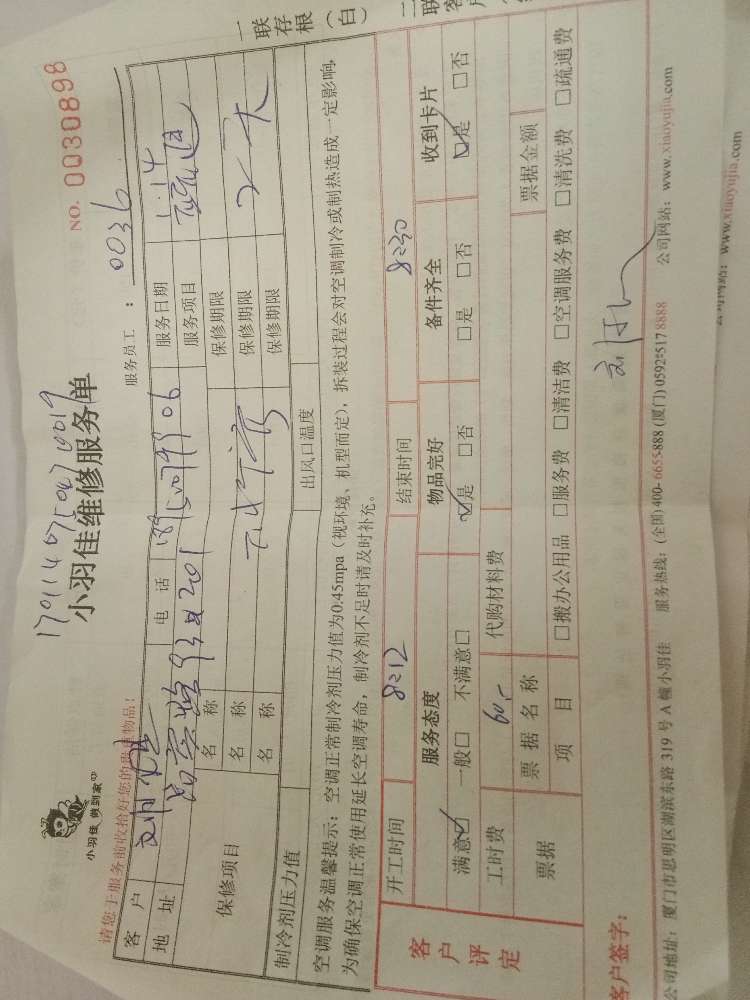 17011407504710019
NO. 0030898
小羽佳 做到家
小羽佳维修服务单
请您于服务前收拾好您的贵重物品！
服务员工： 0036
客户 电话 服务日期 1.14
地址 93 201 服务项目
保修项目 名称 保修期限
名称 保修期限
名称 保修期限
制冷剂压力值 出风口温度
空调服务温馨提示：空调正常制冷剂压力值为0.45mpa（视环境、机型而定），拆装过程会对空调制冷或制热造成一定影响，
为确保空调正常使用延长空调寿命，制冷剂不足时请及时补充。
一联存根（白）
二联客户
客户评定
开工时间 8:12 结束时间 8:30
服务态度 物品完好 备件齐全 收到卡片
满意□ 一般□ 不满意□ □是 □否 □是 □否 □是 □否
工时费 60,- 代购材料费
票据 票据名称 票据金额
项目 □搬办公用品 □服务费 □清洁费 □空调服务费 □清洗费 □疏通费
客户签字：
公司地址：厦门市思明区湖滨东路 319 号 A 幢小羽佳 服务热线：(全国)400-6655-888 (厦门)0592-5178888 公司网站：www.xiaoyujia.com
公司网站：www.xiaoyujia.com